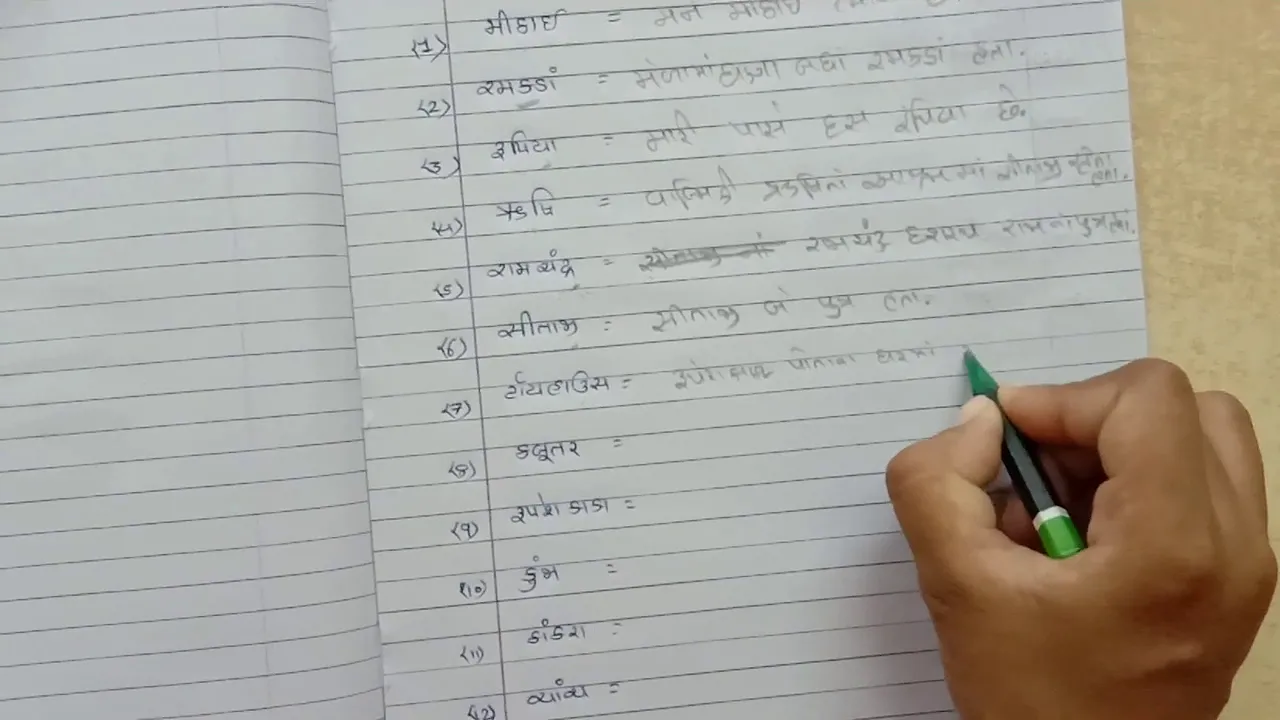 (1) મીઠાઈ = મને મીઠાઈ
(2) રમકડાં = મેળામાં ઘણા બધા રમકડાં હતા.
(3) રૂપિયા = મારી પાસે દસ રૂપિયા છે.
(4) ઋષિ = વાલ્મિકી ઋષિનાં આશ્રમમાં સીતાજી રહેતા હતા.
(5) રામચંદ્ર = રામચંદ્ર દશરથ રાજાનાં પુત્ર હતા.
(6) સીતાજી = સીતાજી બે પુત્ર હતા.
(7) ર્ટાયહાઉસ = પોતાના ઘરમાં
(8) કબૂતર =
(9) રૂપેશ કાકા =
(10) કુંભ =
(11) કાંકરા =
(12) વ્યાંવ્ય =